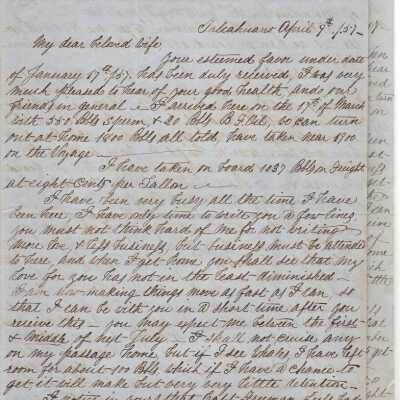 Talcahuano April 9th /57 -
My dear beloved Wife,
Your esteemed favor under date
of January 17th /57, has been duly received, I was very
much pleased to hear of your good health, and our
friends in general - I arrived here on the 17th of March
with 550 Bbls Sperm, & 20 Bbls B Fish, so can turn
out at home 1800 Bbls all told, have taken near 1900
on the Voyage -
I have taken on board 1037 Bbls on Freight
at eight Cents per Gallon
I have been very busy all the time I have
been here, I have only time to write you a few lines
you must not think hard of me for not writing
more love & less business, but business must be attended
to here, and when I get home you shall see that my
love for you has not in the least diminished -
I am now making things move as fast as I can, so
that I can be with you in a short time after you
receive this - you may expect me between the first
& middle of next July - I shall not cruise any
on my passage home but if I see Whales, I have left
room for about 100 Bbls which if I have a chance to
get it will make but very very little detention -